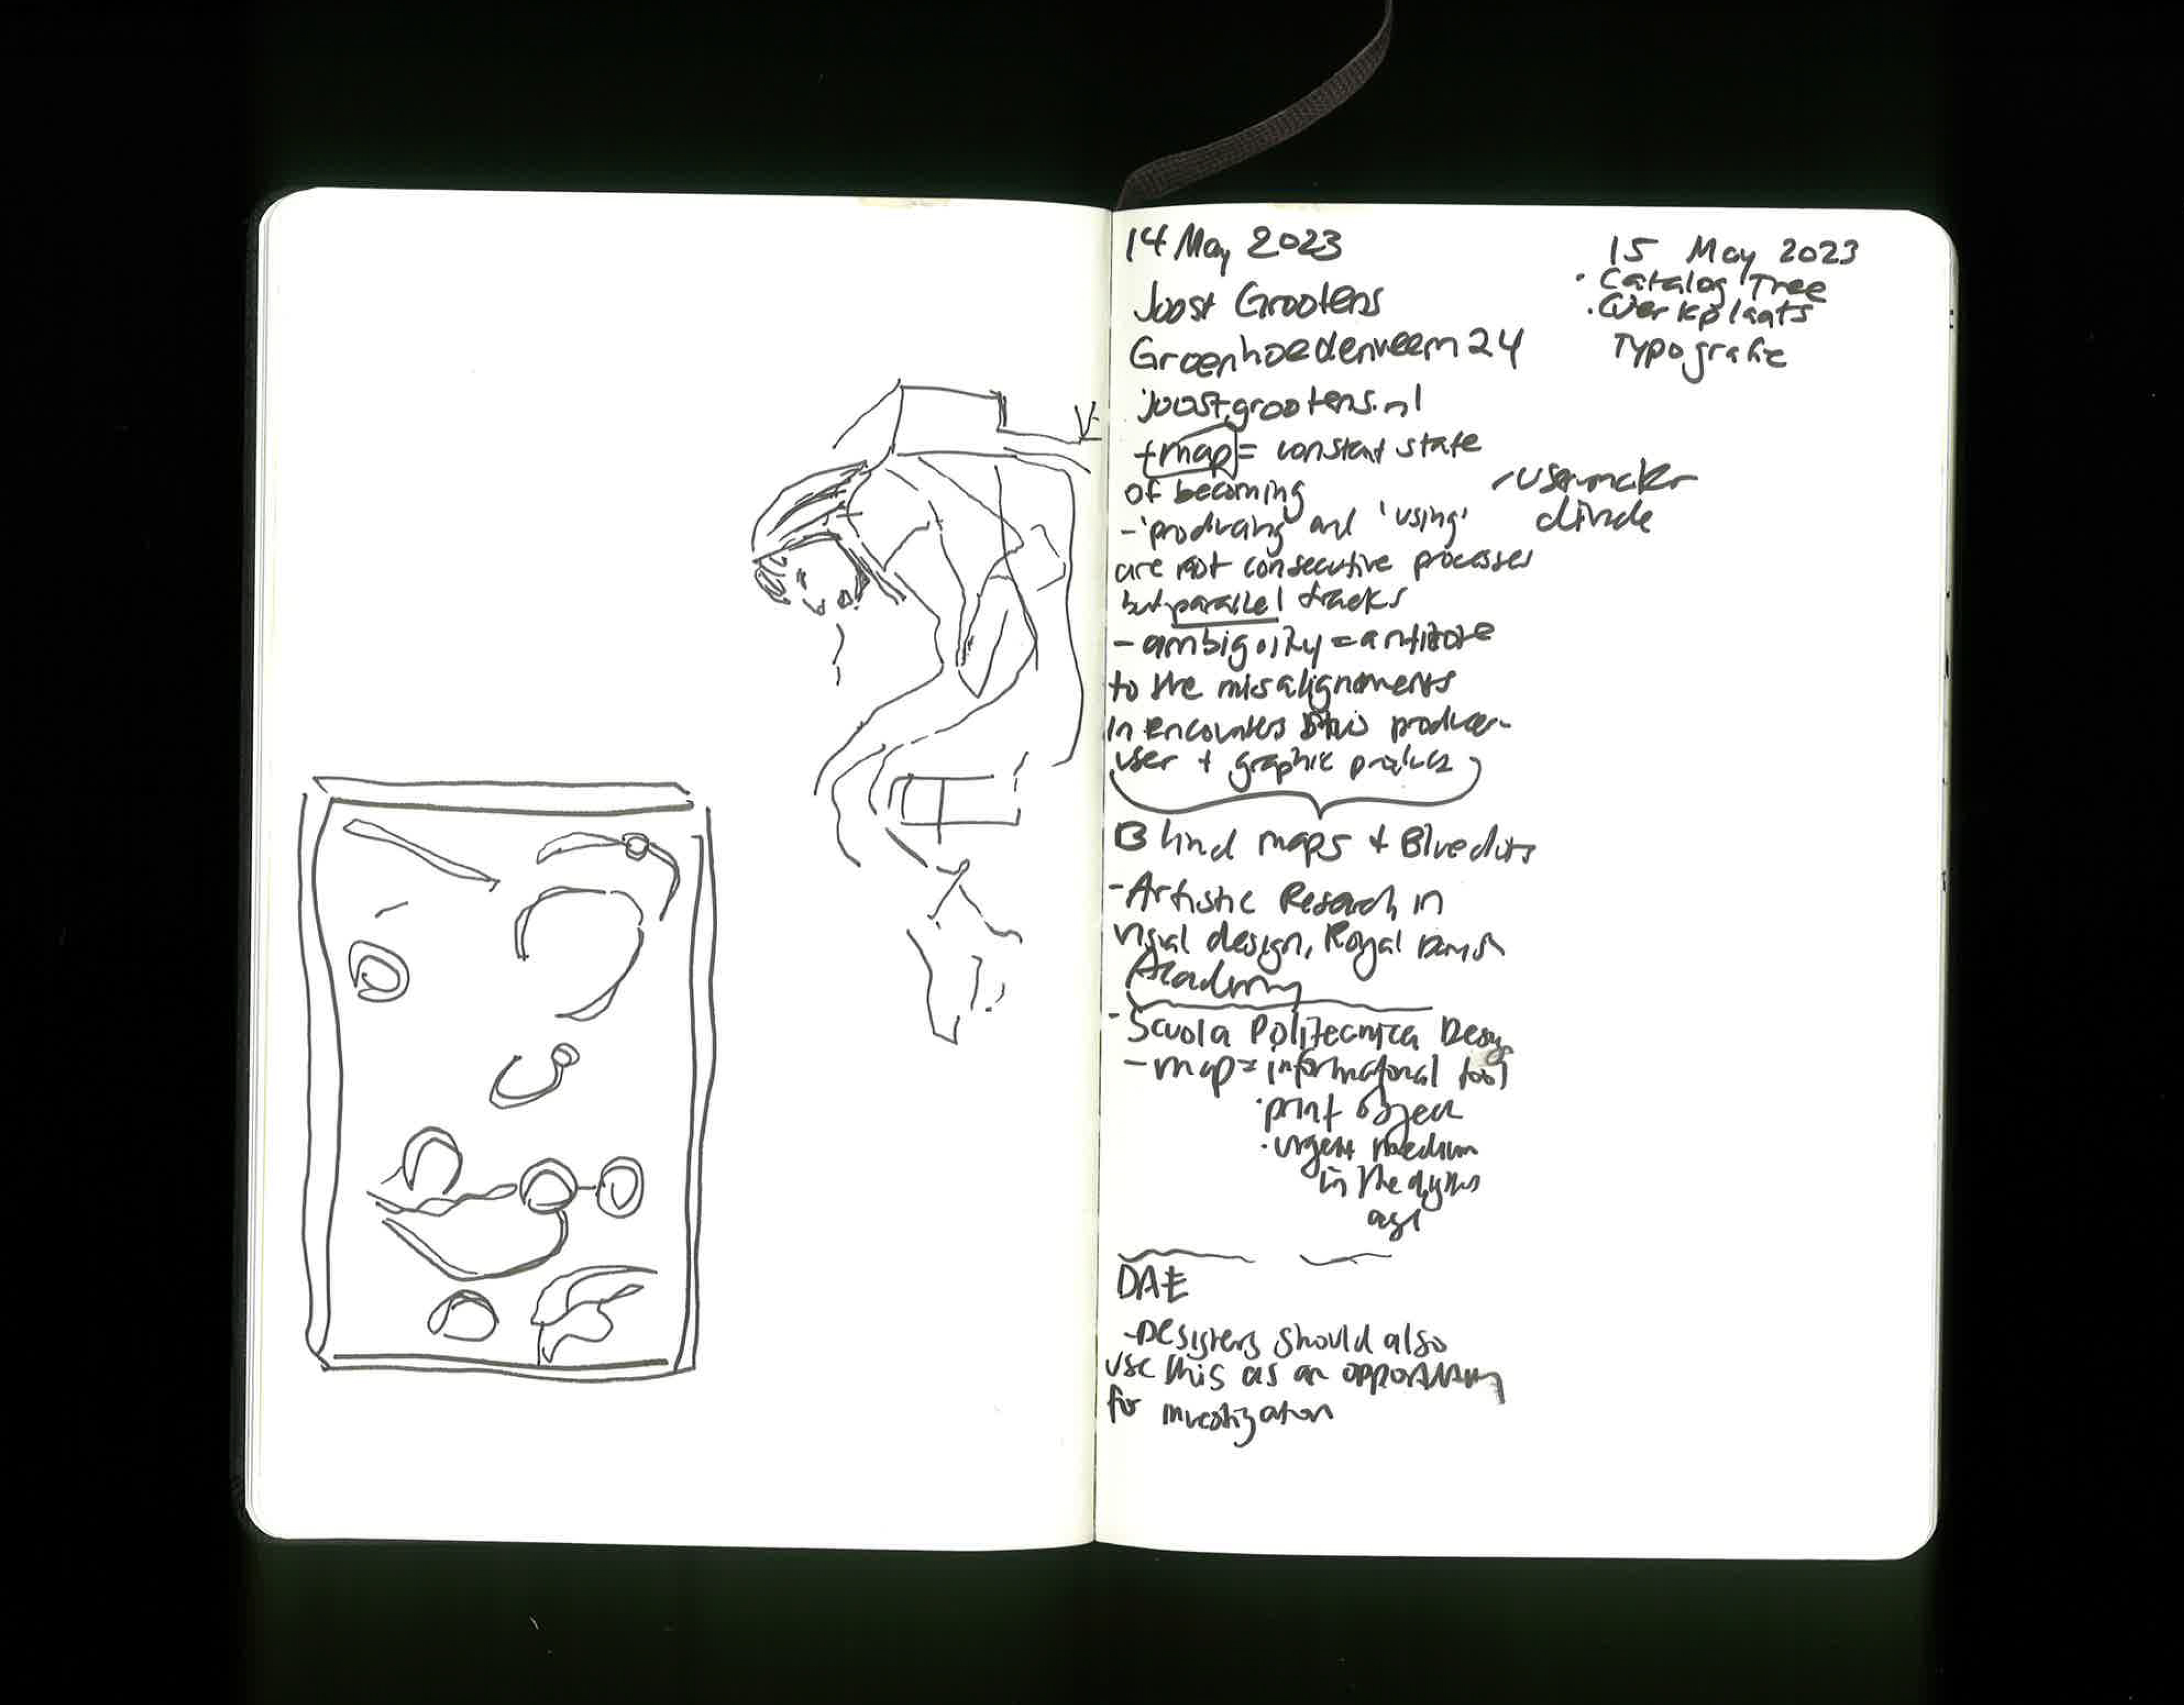 14 May 2023
Joost Grootens
Groenhoedenveem 24
joostgrootens.nl
+ map = constant state
of becoming
- 'producing' and 'using'
are not consecutive processes
but parallel tracks
- user-maker
divide
- ambiguity = antidote
to the misalignments
in encounters btwn producer-
user + graphic products
Blind maps + Blue dots
- Artistic Research in
visual design, Royal Danish
Academy
- Scuola Politecnica Design
- map = informational tool
· print object
· urgent medium
in the
age
DAE
- Designers should also
use this as an opportunity
for investigation
15 May 2023
· Catalog Tree
· Werkplaats
Typografie